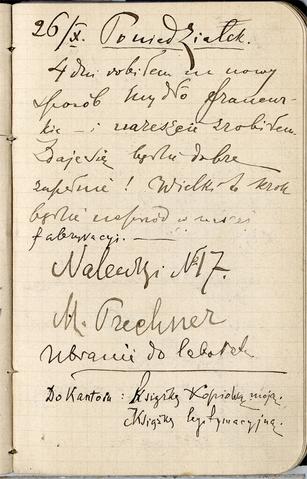 26/X. Poniedziałek.
4 dni robiłem na nowy
sposób mydło francuz-
kie — i nareszcie zrobiłem
Zdaje się będzie dobre
zupełnie! Wielki to krok
będzie naprzód w naszej
fabrykacyi. —
Nalewki № 17.
M. Prechner
Ubranie do
Do Kantoru: Książkę Kopiową moją.
Książkę legitymacyjną.